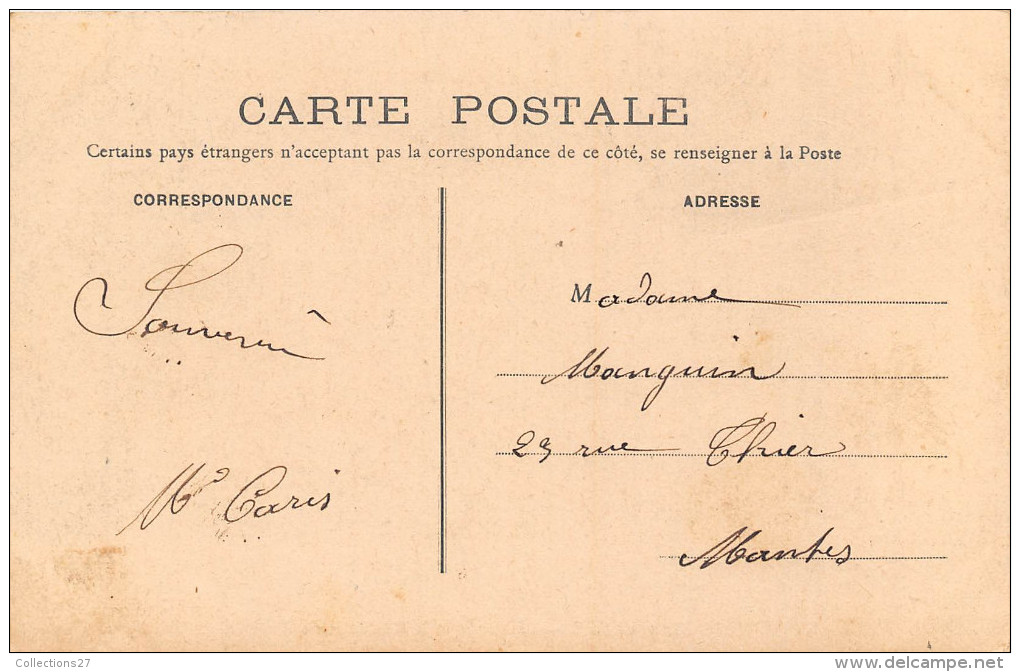 CARTE POSTALE
Certains pays étrangers n'acceptant pas la correspondance de ce côté, se renseigner à la Poste
CORRESPONDANCE
Souvenir
Caris
ADRESSE
Madame
Manguin
23 rue Thier
Mantes
Collections27
www.delcampe.net